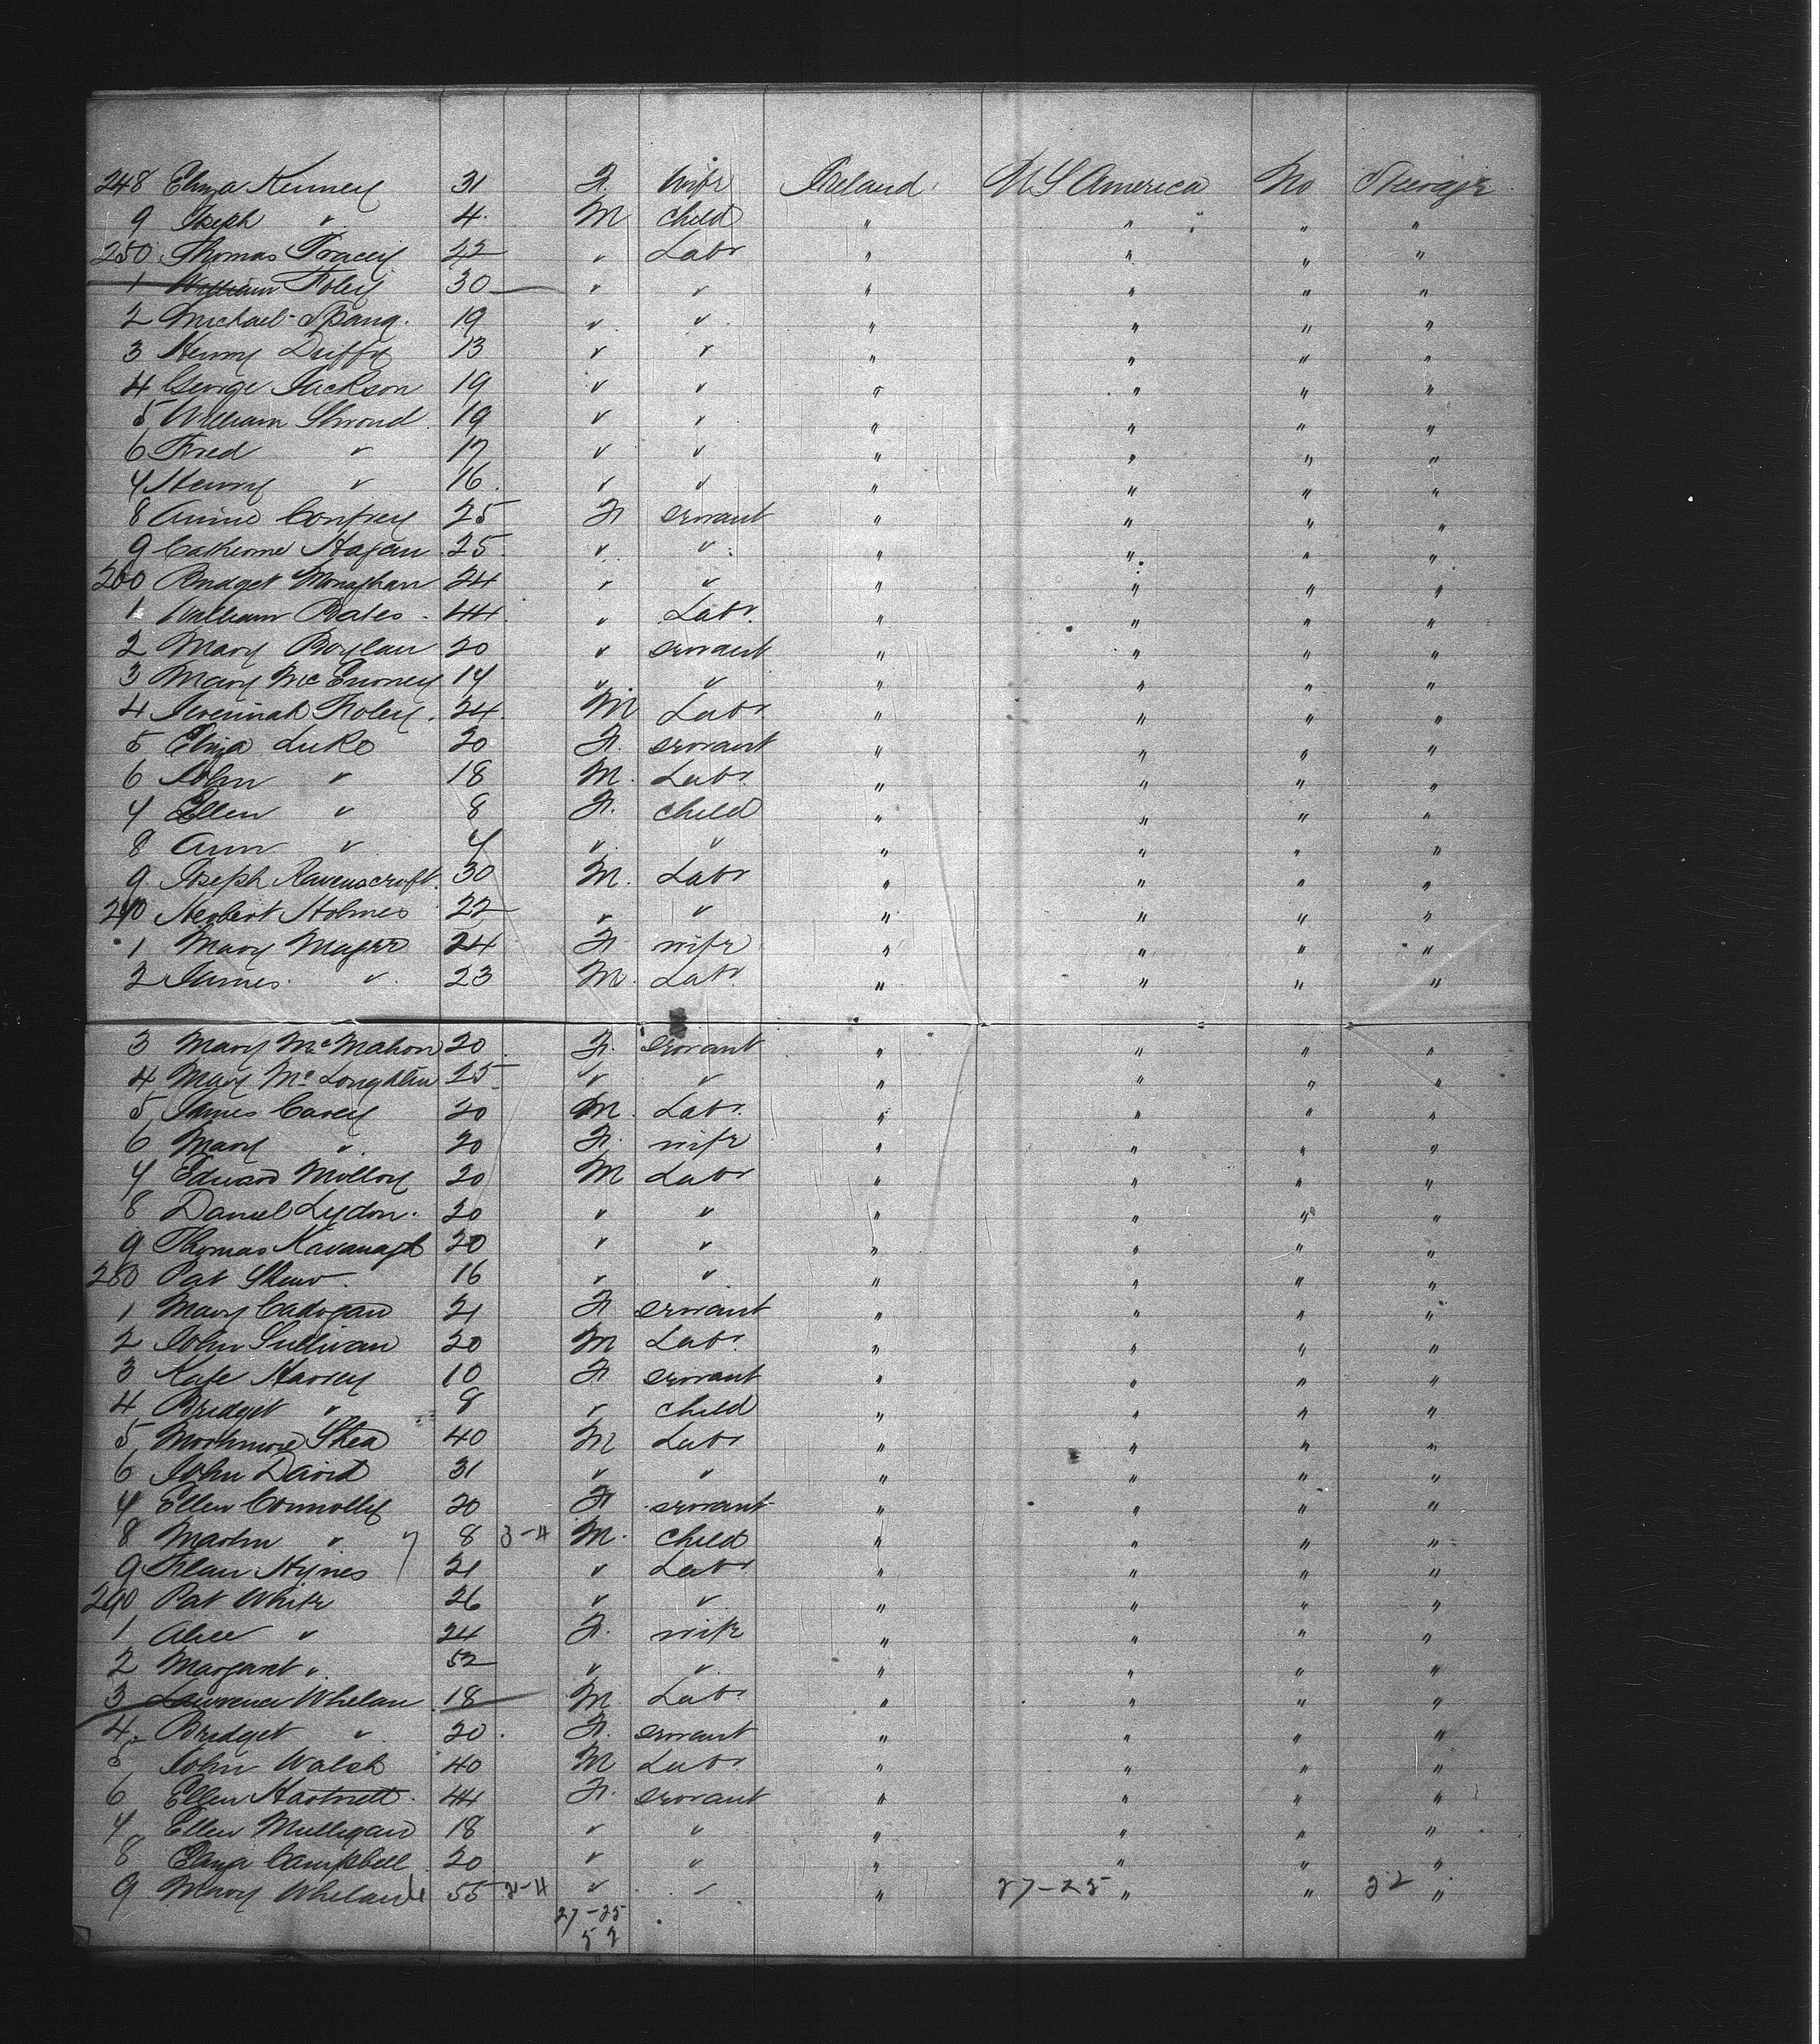 248 Eliza Kenney 31 F. wife Ireland U S America No Steerage
9 Joseph " 4 M child " " " "
250 Thomas Tracey 22 " Labr " " " "
1 William Foley 30 " " " " " "
2 Michael 19 " " " " " "
3 Henry Duffy 13 " " " " " "
4 George Jackson 19 " " " " " "
5 William Shroud 19 " " " " " "
6 Fred " 17 " " " " " "
7 Henry " 16 " " " " " "
8 Annie Confrey 25 F servant " " " "
9 Catherine Hagan 25 " " " " " "
260 Bridget Monaghan 24 " " " " " "
1 William Bates 44 " Labr " " " "
2 Mary Boylan 20 " servant " " " "
3 Mary McEnroney 17 " " " " " "
4 Jeremiah Foley 24 M Labr " " " "
5 Eliza Luke 20 F. servant " " " "
6 John " 18 M. Labr " " " "
7 Ellen " 8 F. child " " " "
8 Ann " 7 " " " " " "
9 Joseph Ravenscroft 30 M. Labr " " " "
270 Herbert Holmes 22 " " " " " "
1 Mary Magee 24 F wife " " " "
2 James " 23 M. Labr " " " "
3 Mary McMahon 20 F. servant " " " "
4 Mary McLoughlin 25 " " " " " "
5 James Carey 20 M. Labr " " " "
6 Mary " 20 F. wife " " " "
7 Edward Molloy 20 M Labr " " " "
8 Daniel Lydon 20 " " " " " "
9 Thomas Kavanagh 20 " " " " " "
280 Pat 16 " " " " " "
1 Mary Cadogan 21 F servant " " " "
2 John Sullivan 20 M Labr " " " "
3 Kate Harvey 10 F servant " " " "
4 Bridget " 8 " child " " " "
5 Shea 40 M Labr " " " "
6 John David 31 " " " " " "
7 Ellen Connolly 20 F servant " " " "
8 Martin " 7 8 3-4 M. child " " " "
9 Hynes 21 " Labr " " " "
290 Pat White 26 " " " " " "
1 Alice " 24 F. wife " " " "
2 Margaret " 52 " " " " " "
3 Lawrence Whelan 18 M. Labr " " " "
4 Bridget " 20 F. servant " " " "
5 John Walsh 40 M Labr " " " "
6 Ellen Hartnett 44 F. servant " " " "
7 Ellen Mulligan 18 " " " " " "
8 Eliza Campbell 20 " " " " " "
9 Mary Whelan 55 " " " 27-25 " " 22 "
27-25
52